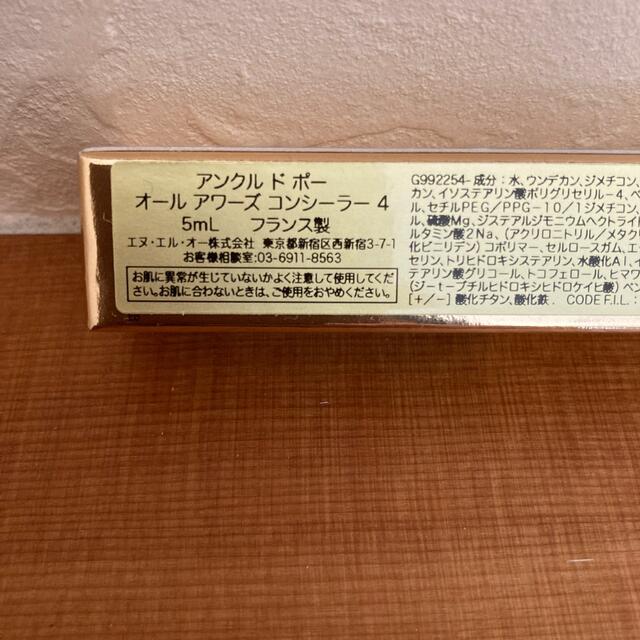 アンクル ド ポー
オール アワーズ コンシーラー 4
5mL フランス製
エヌ・エル・オー株式会社 東京都新宿区西新宿3-7-1
お客様相談室:03-6911-8563
お肌に異常が生じていないかよく注意して使用してくだ
さい。お肌に合わないときは、ご使用をおやめください。
G992254-成分:水、ウンデカン、ジメチコン
カン、イソステアリン酸ポリグリセリル-4、
ル、セチルPEG/PPG-10/1ジメチコン、
ル、硫酸Mg、ジステアルジモニウムヘクトライ
ルタミン酸2Na、(アクリロニトリル/メタクリ
化ビニリデン)コポリマー、セルロースガム、エ
セリン、トリヒドロキシステアリン、水酸化Al、イ
テアリン酸グリコール、トコフェロール、ヒマワ
(ジ-t-ブチルヒドロキシヒドロケイヒ酸)ペン
[+/-]酸化チタン、酸化鉄. CODE F.I.L. :